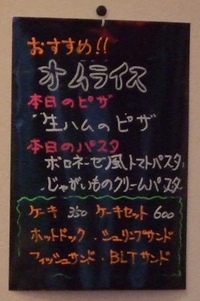 おすすめ!!
オムライス
本日のピザ
生ハムのピザ
本日のパスタ
ボロネーゼ風トマトパスタ
じゃがいものクリームパスタ
ケーキ 350 ケーキセット 600
ホットドック .シュリンプサンド
フィッシュサンド .BLTサンド